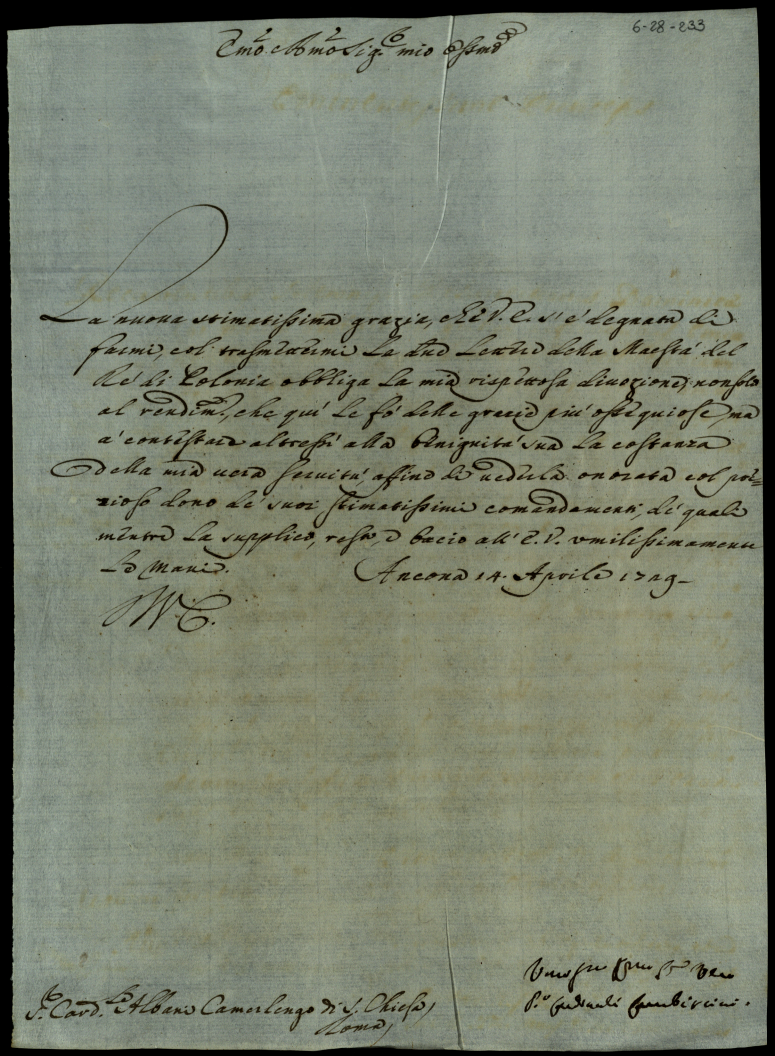 6-28-233
Emo. e Rmo. Sig.r mio Ossmo
La nuova stimatissima grazia, che V. E. s'è degnata di
farmi, col trasmettermi la sua Lettera della Maestà del
Rè di Polonia obbliga la mia rispettosa divozione, non solo
al rendim.to, che quì le fò delle grazie più ossequiose, ma
à contestare altressì alla benignità sua la costanza
della mia vera servitù, affine di vederla onorata col pre=
zioso dono de' suoi stimatissimi comandamenti, de' quali
mentre la supplico, resto, e bacio all' E. V. umilissimamente
le mani.
Ancona 14. Aprile 1729_
S.r Card.le Albani Camerlengo di S. Chiesa,
Roma,